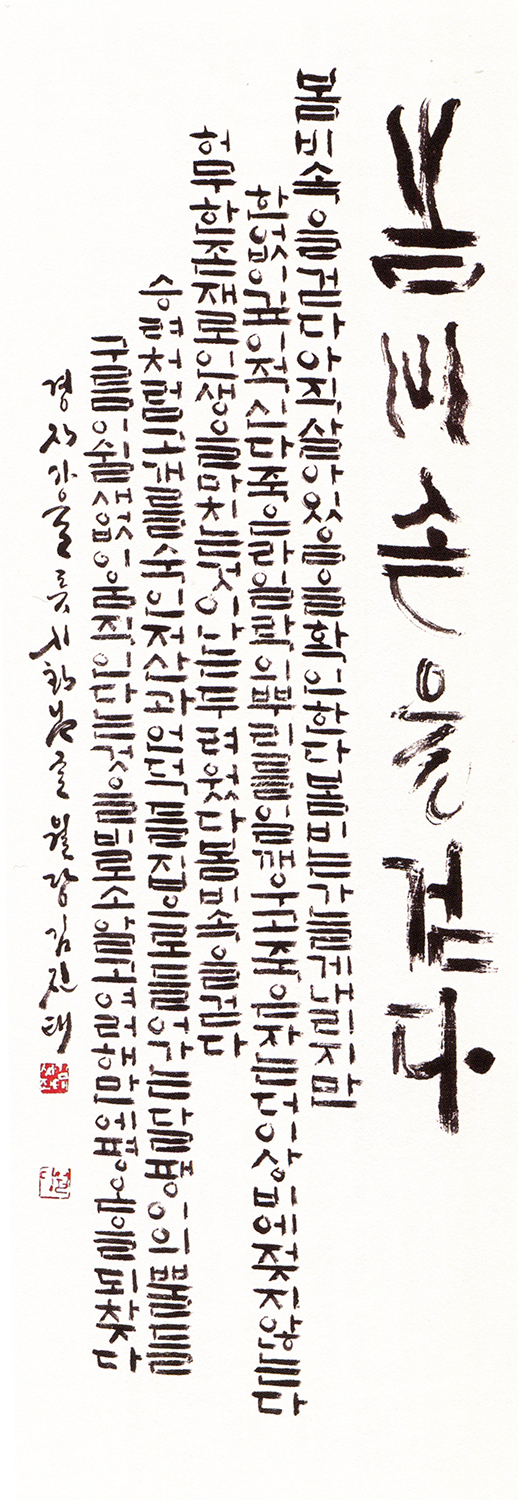 봄비 속을 걷다
봄비 속을 걷다 아직 살아 있음을 확인한다 봄비는 가늘게 내리지만
한없이 깊이 적신다 죽은 라일락 뿌리를 일깨우고 죽은 자는 더이상 비에 젖지 않는다
허무한 존재로 인생을 마치는 것이 나는 두려웠다 봄비 속을 걷다
승려처럼 고개를 숙인 저 산과 언덕들 집으로 들어가는 달팽이의 뿔들
구름이 쉴새없이 움직인다는 것을 비로소 알고 여러 해만에 평온을 되찾다
경자가을 류시화님 글 김진태